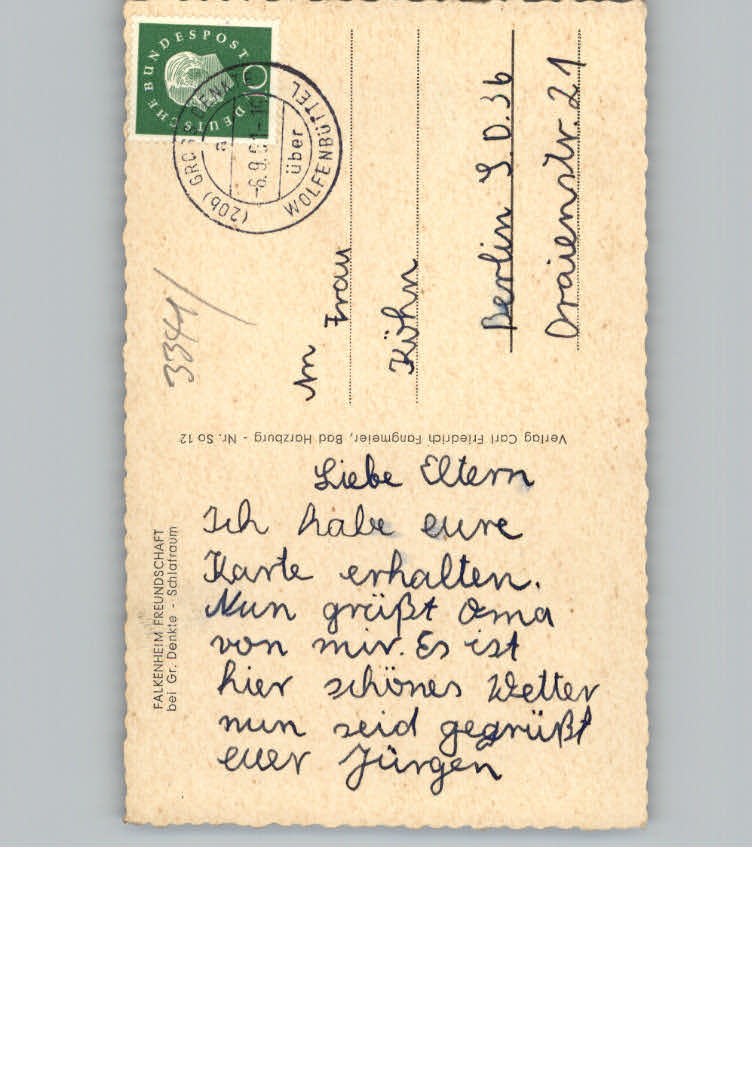 FALKENHEIM FREUNDSCHAFT
bei Gr. Denkte - Schlafraum
Liebe Eltern
Ich habe eure
Karte erhalten.
Nun grüßt Oma
von mir. Es ist
hier schönes Wetter
nun seid gegrüßt
euer Jürgen
Verlag Carl Friedrich Fangmeier, Bad Harzburg - Nr. So 12
3344/
DEUTSCHE BUNDESPOST
10
(20b) GROSS DENKTE
über
WOLFENBÜTTEL
a
An
Frau
Kühn
Berlin S.O.36
Oraienstr. 21